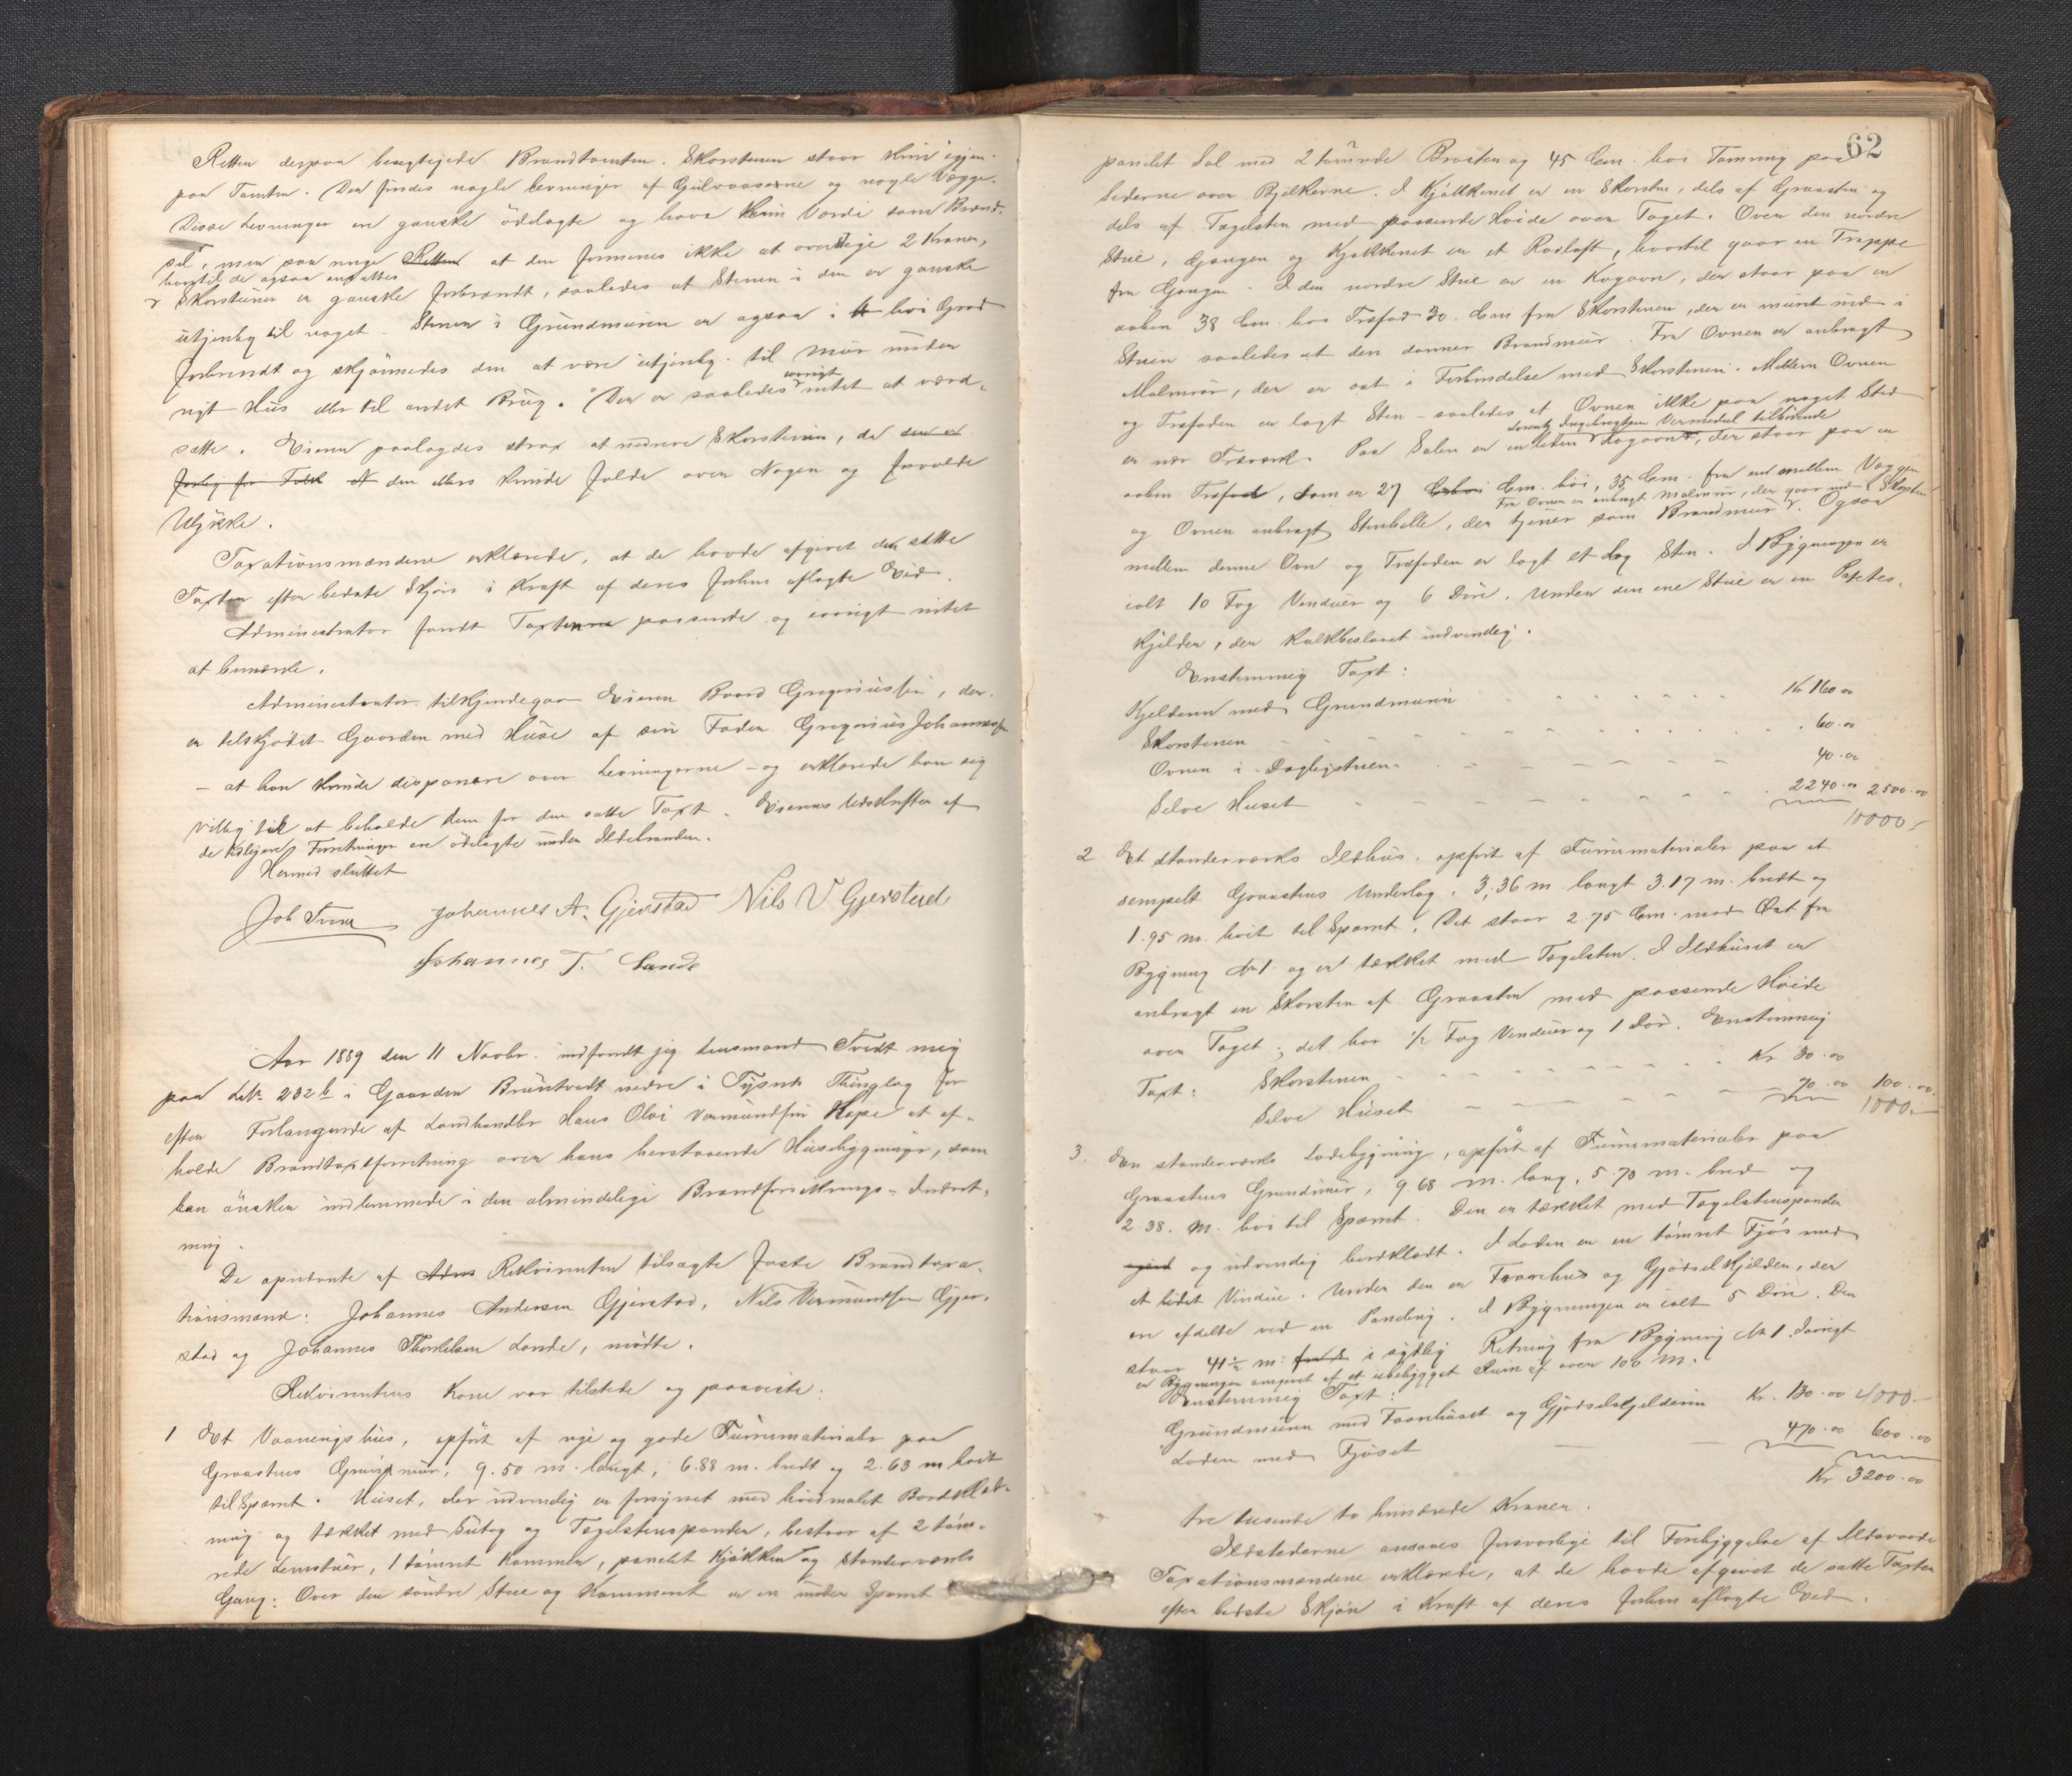 Retten derpaa besigtigede Brandtomten. Skorstenen staar kun igjen
paa Tomten. Der findes nogle Levninger af Gulvaaserne og nogle Vægge.
Disse Levninger er ganske ödelagte og have kun Værdi som Brænd-
sel, men saa ringe Retten at den formenes ikke at overstige 2 Kroner,
hvortil de ogsaa ansættes
Skorstenen er ganske forbrændt, saaledes at Stenen i den er ganske
utjenlig til noget. Stenen i Grundmuren er ogsaa i höi Grad
forbrændt og skjönnedes den at være utjenlig til Mur under
nyt Hus eller til andet Brug. Der er saaledes intet at værd-
övrigt
sætte. Eieren paalagdes strax at nedrive Skorstenen, da den er
farlig for Folk at den ellers kunde falde over Nogen og forvolde
Ulykke.
Taxationsmændene erklærede, at de havde afgivet den satte
Taxten efter bedste Skjön i Kraft af deres forhen aflagte Eed.
Administrator fandt Taxterne passende og iövrigt intet
at bemærke.
Administrator tilkjendegav Eieren Baard Gregoriussen, der
er tilskjödet Gaarden med Huse af sin Fader Gregorius Johannessen
– at han kunde disponere over Levningerne – og erklærede han sig
villig til at beholde dem for den satte Taxt. Eierens Udskrifter af
de tidligere Forretninger ere ödelagte under Ildebranden.
Hermed sluttet
Joh Tvedt Johannes A. Gjerstad Nils V Gjerstad
Johannes T. Lande
Aar 1889 den 11 Novbr. indfandt jeg Lensmand Tvedt mig
paa LNr. 232 b i Gaarden Bruntvedt nedre i Tysnes Thinglag for
efter Forlangende af Landhandler Hans Olai Vermundsen Hope at af-
holde Brandtaxtforretning over hans herstaaende Husebygninger, som
han önsker indlemmede i den almindelige Brandforsikrings-Indret-
ning.
De opnævnte af Adms Rekvirenten tilsagte faste Brandtaxa-
tionsmænd: Johannes Andersen Gjerstad, Nils Vermundsen Gjer-
stad og Johannes Thorkelsen Lande, mödte.
Rekvirentens Kone var tilstede og paaviste:
1 Et Vaaningshus, opfört af nye og gode Furumaterialer paa
Graastens Grundmur, 9.50 m. langt, 6.88 m. bredt og 2.63 m höit
til Spæret. Huset, der udvendig er forsynet med hvidmalet Bordklæd-
ning og tækket med Sutag og Tegelstenspander, bestaar af 2 töm-
rede Lemstuer, 1 tömret Kammer, panelet Kjökken og Standerværks
Gang. Over den söndre Stue og Kammeret er en under Spæret
62
panelet Sal med 2 tömrede Bröster og 45 Cm. höi Tömring paa
Siderne over Bjelkerne. I Kjökkenet er en Skorsten, dels af Graasten og
dels af Tegelsten med passende Höide over Taget. Over den nordre
Stue, Gangen og Kjökkenet er et Rarloft, hvortil gaar en Trappe
fra Gangen. I den nordre Stue er en Kogovn, der staar paa en
aaben 38 Cm. höi Træfod 30 Cm fra Skorstenen, der er muret ind i
Stuen saaledes at den danner Brandmur. Fra Ovnen er anbragt
Malmrör, der er sat i Forbindelse med Skorstenen. Mellem Ovnen
og Træfoden er lagt Sten – saaledes at Ovnen ikke paa noget Sted
er nær Træværk. Paa Salen er en liden Kogovn, der staar paa en
aaben Træfod, som er 27 Cm. höi, 35 Cm. fra mellem Væggen
Fra Ovnen er anbragt Malmrör, der gaar ind i Skorsten
og Ovnen anbragt Stenhelle, der tjener som Brandmur. Ogsaa
mellem denne Ovn og Træfoden er lagt et Lag Sten. I Bygningen er
ialt 10 Fag Vinduer og 6 Döre. Under den ene Stue er en Potetes-
kjelder, der kalkbeslaaet indvendig.
Enstemmig Taxt:
Kjelderen med Grundmuren Kr 160.00
Skorstenen 60.00
Ovnen i Dagligstuen 40.00
Selve Huset 2240.00 2500.00
10000
2 Et standerværks Ildhus, opfört af Furumaterialer paa et
sempelt Graastens Underlag, 3,36 m langt 3.17 m. bredt og
1.95 m. höit til Spæret. Det staar 2.75 Cm. mod Öst fra
Bygning No 1 og er tækket med Tegelsten. I Ildhuset er
anbragt en Skorsten af Graasten med passende Höide
over Taget; det har ½ Fag Vinduer og 1 Dör. Enstemmig
Taxt: Skorstenen Kr. 30.00
Selve Huset 70.00 100.00
1000
3. En standerværks Ladebygning, opfört af Furumaterialer paa
Graastens Grundmur, 9.68 m. lang, 5.73 m. bred og
2.38. m. höi til Spæret. Den er tækket med Tegelstenspander
og udvendig bordklædt. I Laden er en tömret Fjös med
et lidet Vindue. Under den er Faarehus og Gjödselkjelder, der
er afdelte ved en Paneling. I Bygningen er ialt 5 Döre. Den
staar 41½ m. i sydlig Retning fra Bygning No 1. Iövrigt
er Bygningen omgivet af et ubebygget Rum af over 100 m.
Enstemmig Taxt:
Grundmuren med Faarehuset og Gjödselskjelderen Kr. 130.00 4000
Laden med Fjöset 470.00 600.00
Kr 3200.00
tre tusende to hundrede Kroner.
Ildstederne ansaaes forsvarlige til Forebyggelse af Ildsvaade
Taxationsmændene erklærede, at de havde afgivet de satte Taxter
efter bedste Skjön i Kraft af deres forhen aflagte Eed.